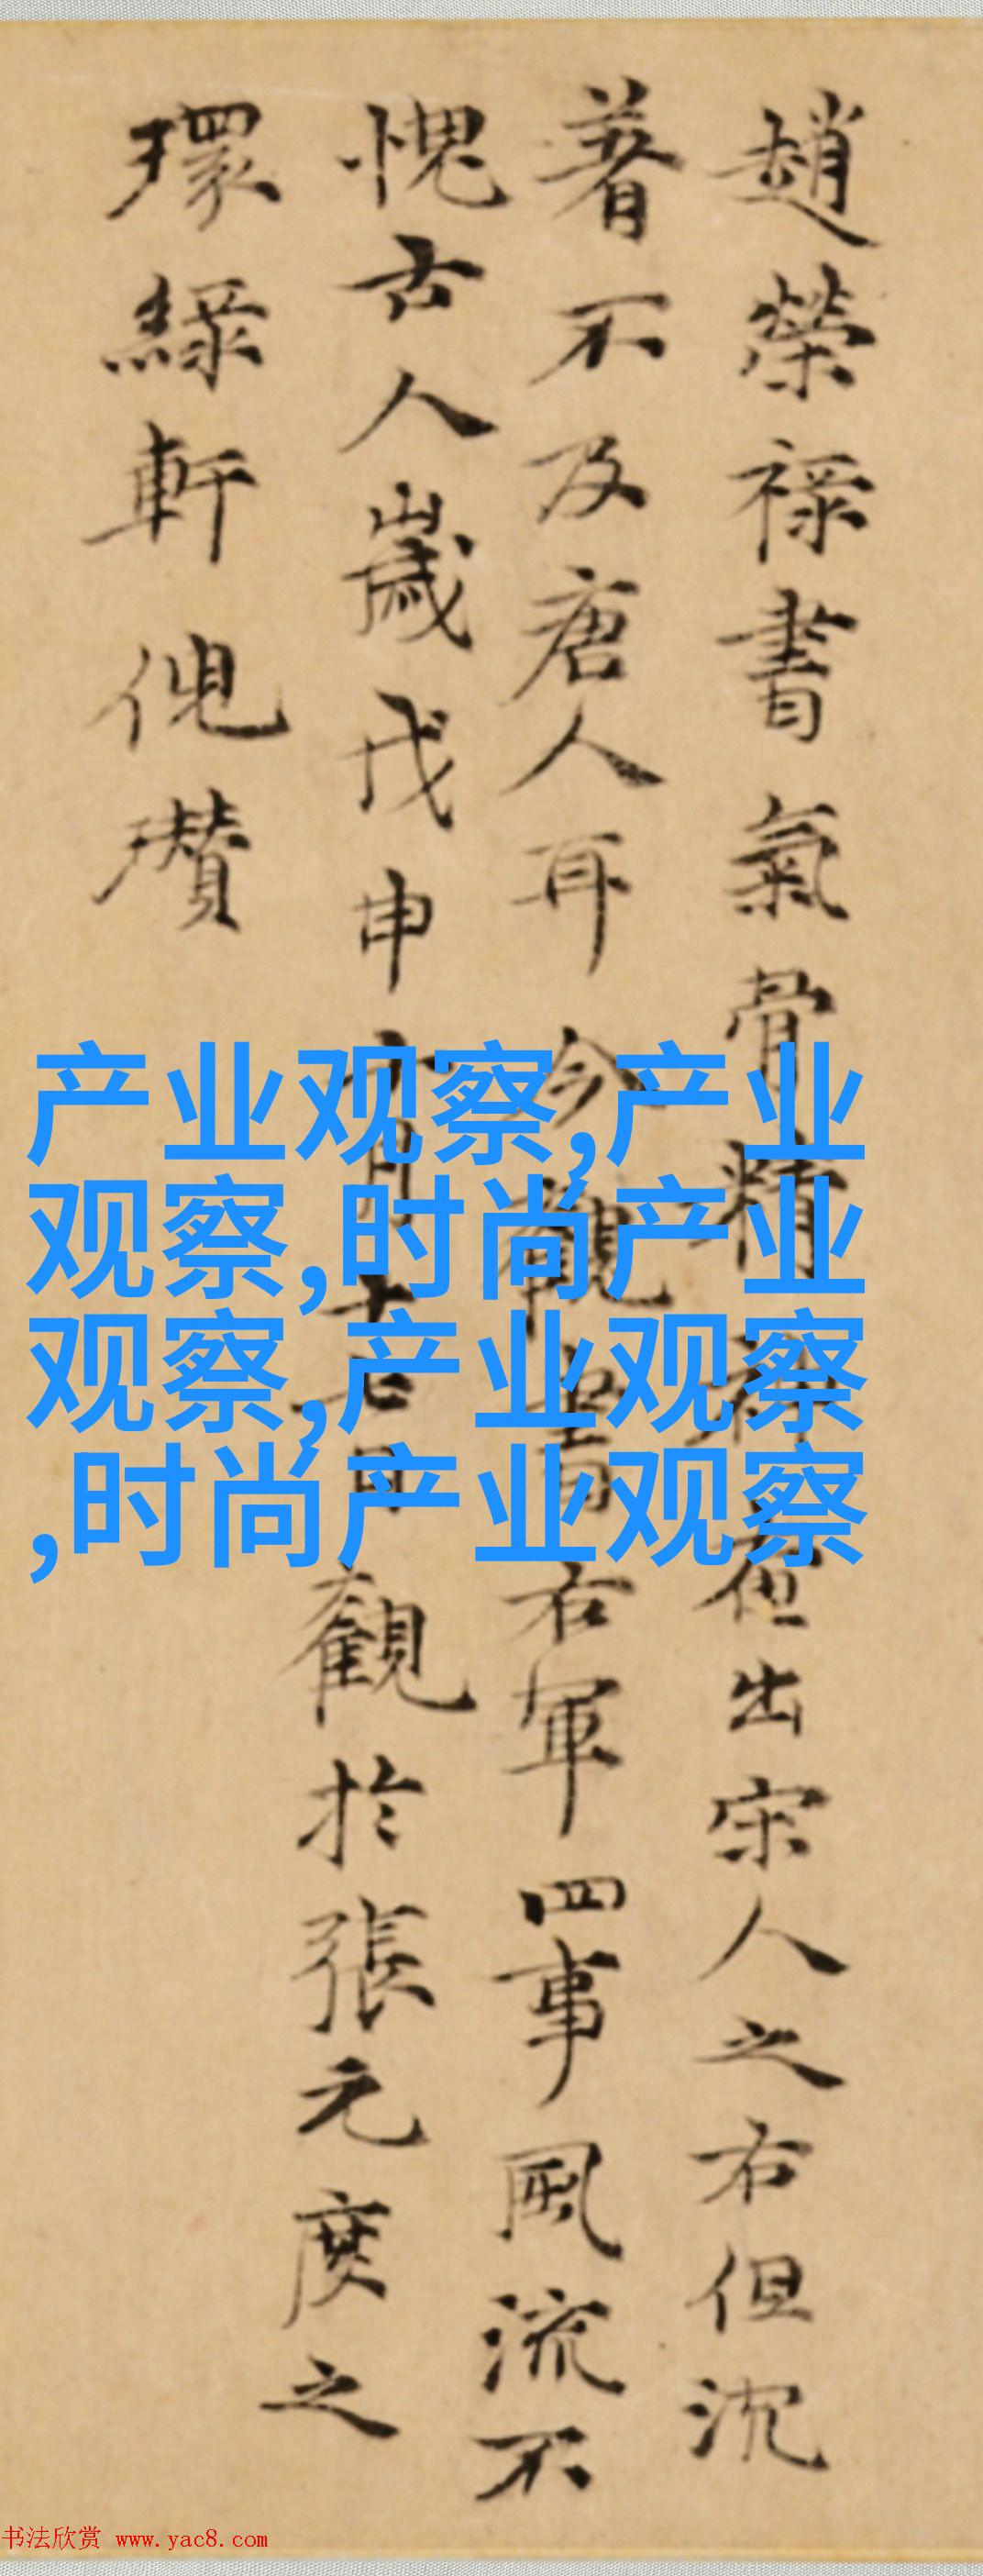 趙榮祿書氣骨精神在出宋人之右但沉
著不及唐人耳今觀書右軍四事風流不
愧古人歲戊申六月十七日觀於張元度之
環綠軒倪瓚
产业观察,产业
观察,时尚产业
观察,产业观察
,时尚产业观察
书法欣赏 www.yac8.com